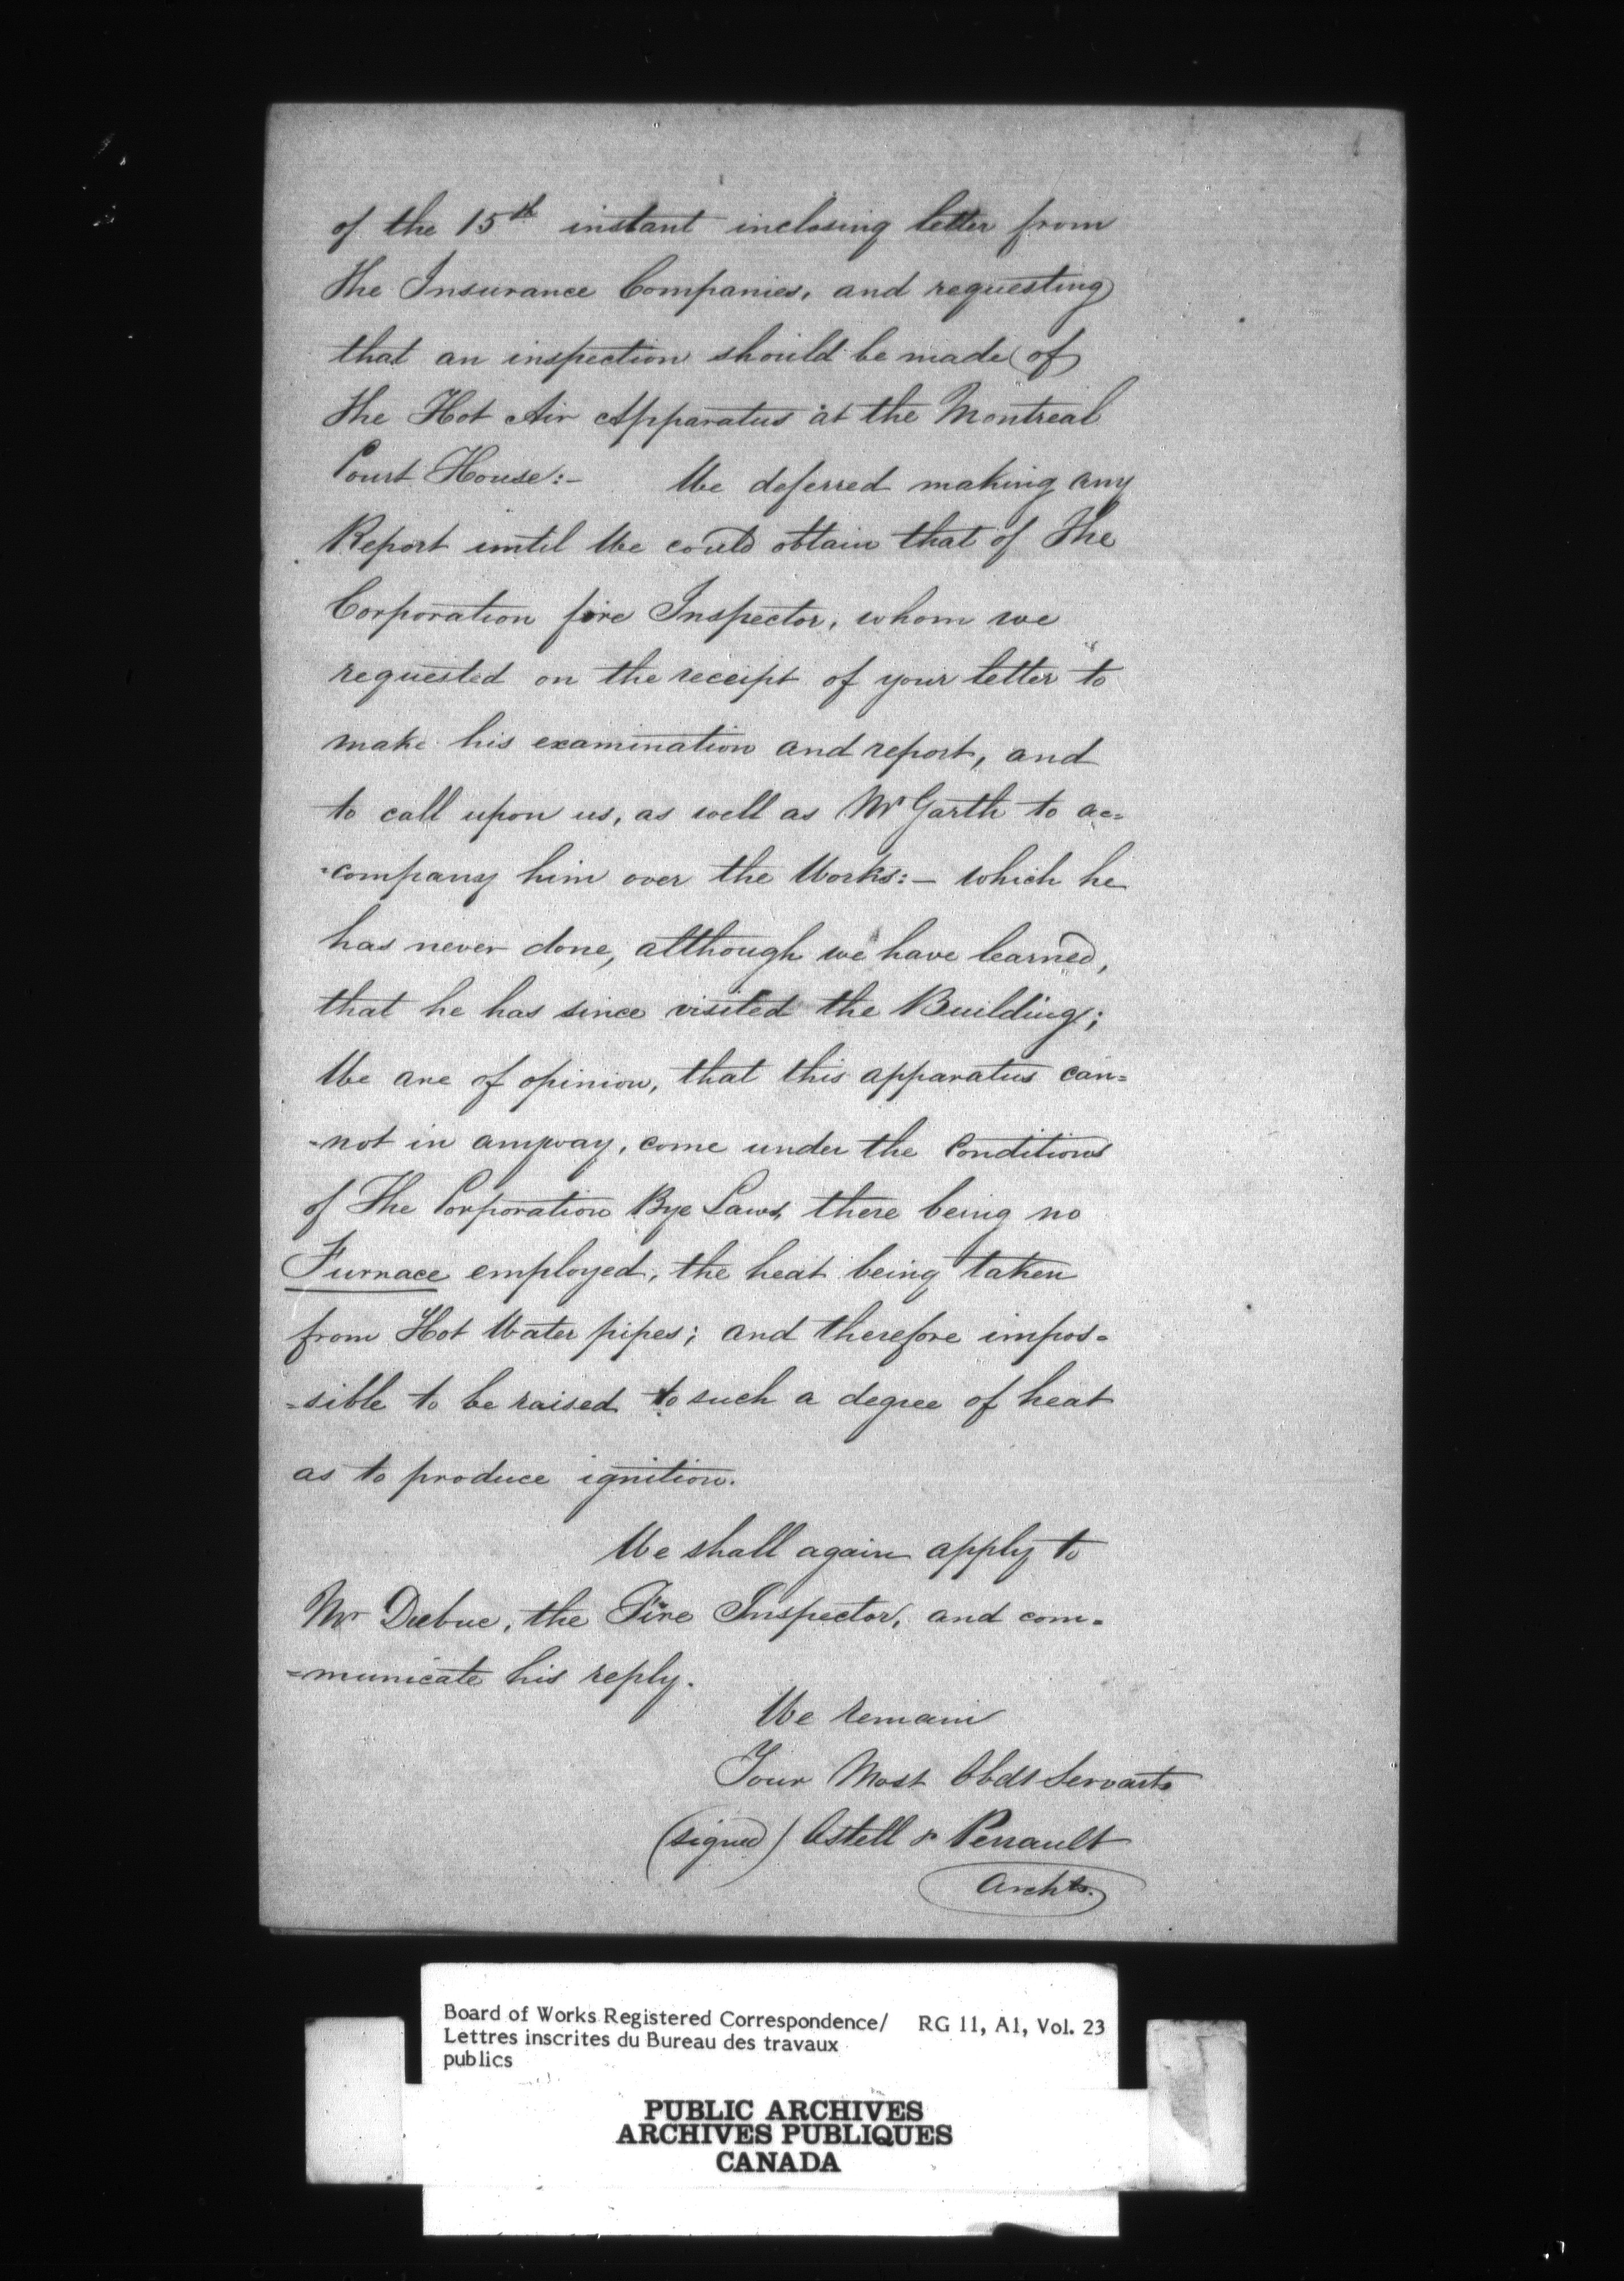 of the 15th instant inclosing letter from
the Insurance Companies, and requesting
that an inspection should be made of
the Hot Air Apparatus at the Montreal
Court House:- We deferred making any
Report until We could obtain that of The
Corporation fire Inspector, whom we
requested on the receipt of your letter to
make his examination and report, and
to call upon us, as well as Mr Garth to ac=
=company him over the Works:- which he
has never done, although we have learned,
that he has since visited the Building;
We are of opinion, that this apparatus can=
=not in anyway, come under the Conditions
of The Corporation Bye Laws, there being no
Furnace employed, the heat being taken
from Hot Water pipes; and therefore impos=
=sible to be raised to such a degree of heat
as to produce ignition.
We shall again apply to
Mr Dubuc, the Fire Inspector, and com=
=municate his reply.
We remain
Your Most Obdt Servants
(signed) Ostell & Perrault
Archts.
Board of Works Registered Correspondence/ RG 11, A1, Vol. 23
Lettres inscrites du Bureau des travaux
publics
PUBLIC ARCHIVES
ARCHIVES PUBLIQUES
CANADA